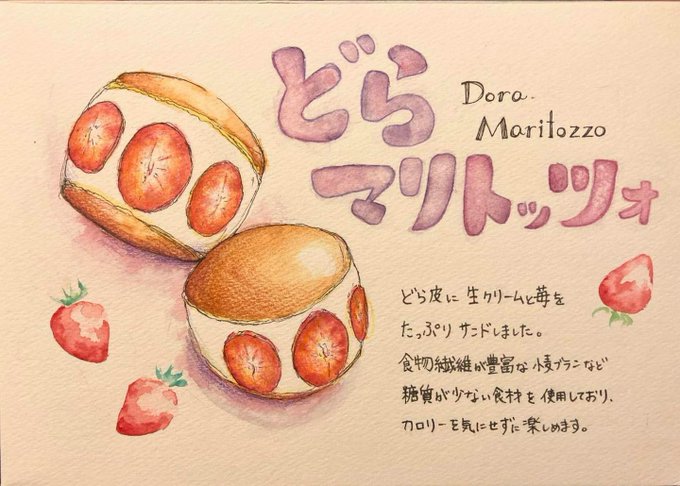 どら
Dora
Maritozzo
マリトッツォ
どら皮に生クリームと苺を
たっぷりサンドしました。
食物繊維が豊富な小麦ブランなど
糖質が少ない食材を使用しており、
カロリーを気にせずに楽しめます。